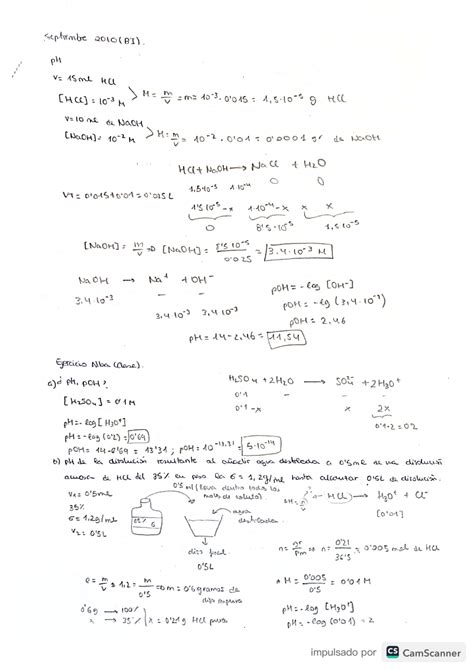 Septiembre 2010 (BI).
pH
V= 15ml HCl
[HCl] = 10⁻³ M
M = m/v = m = 10⁻³ · 0'015 = 1,5·10⁻⁵ g HCl
V=10 ml de NaOH
[NaOH] = 10⁻² M
M = m/v = 10⁻² · 0'01 = 0'0001 gr de NaOH
HCl + NaOH → NaCl + H₂O
1,5·10⁻⁵ 1·10⁻⁴ 0 0
VT = 0'015+0'01 = 0'025L
1'5·10⁻⁵-x 1·10⁻⁴-x x x
0 8'5·10⁻⁵ 1,5·10⁻⁵
[NaOH] = m/v ⇒ [NaOH] = 8'5·10⁻⁵/0'025 = 3.4·10⁻³ M
NaOH → Na⁺ + OH⁻
3.4·10⁻³ - -
- 3.4·10⁻³ 3.4·10⁻³
pOH = -log [OH⁻]
pOH = -log (3,4·10⁻³)
pOH = 2.46
pH = 14-2.46 = 11,54
Ejercicio (Clase).
a) ¿ pH, pOH?
H₂SO₄ + 2H₂O → SO₄²⁻ + 2H₃O⁺
[H₂SO₄] = 0'1M
0'1 - -
0'1-x x 2x
0'1·2=0'2
pH = -log [H₃O⁺]
pH = -log (0'2) = 0'69
pOH = 14-0'69 = 13'31 ; pOH = 10⁻¹³·³¹ = 5·10⁻¹⁴
b) pH de la disolución resultante al añadir agua destilada a 0'5ml de una disolución
acuosa de HCl del 35% en peso la σ = 1,2g/ml hasta alcanzar 0'5L de disolución.
0'5ml (lleva dentro todos los
moles de soluto)
V₁ = 0'5ml
35%
σ = 1.2g/ml
V₂ = 0'5L
35% σ
agua
destilada
diso final
0'5L
HCl → H₃O⁺ + Cl⁻
[0'01]
n = gr/Pm ⇒ n = 0'21/36'5 = 0'005 mol de HCl
ρ = m/v ⇒ 1.2 = m/0'5 ⇒ m = 0'6 gramos de
diso impura
0'6g → 100%
x → 35% x = 0'21g HCl puro
M = 0'005/0'5 = 0'01M
pH = -log [H₃O⁺]
pH = -log (0'01) = 2
impulsado por CS CamScanner